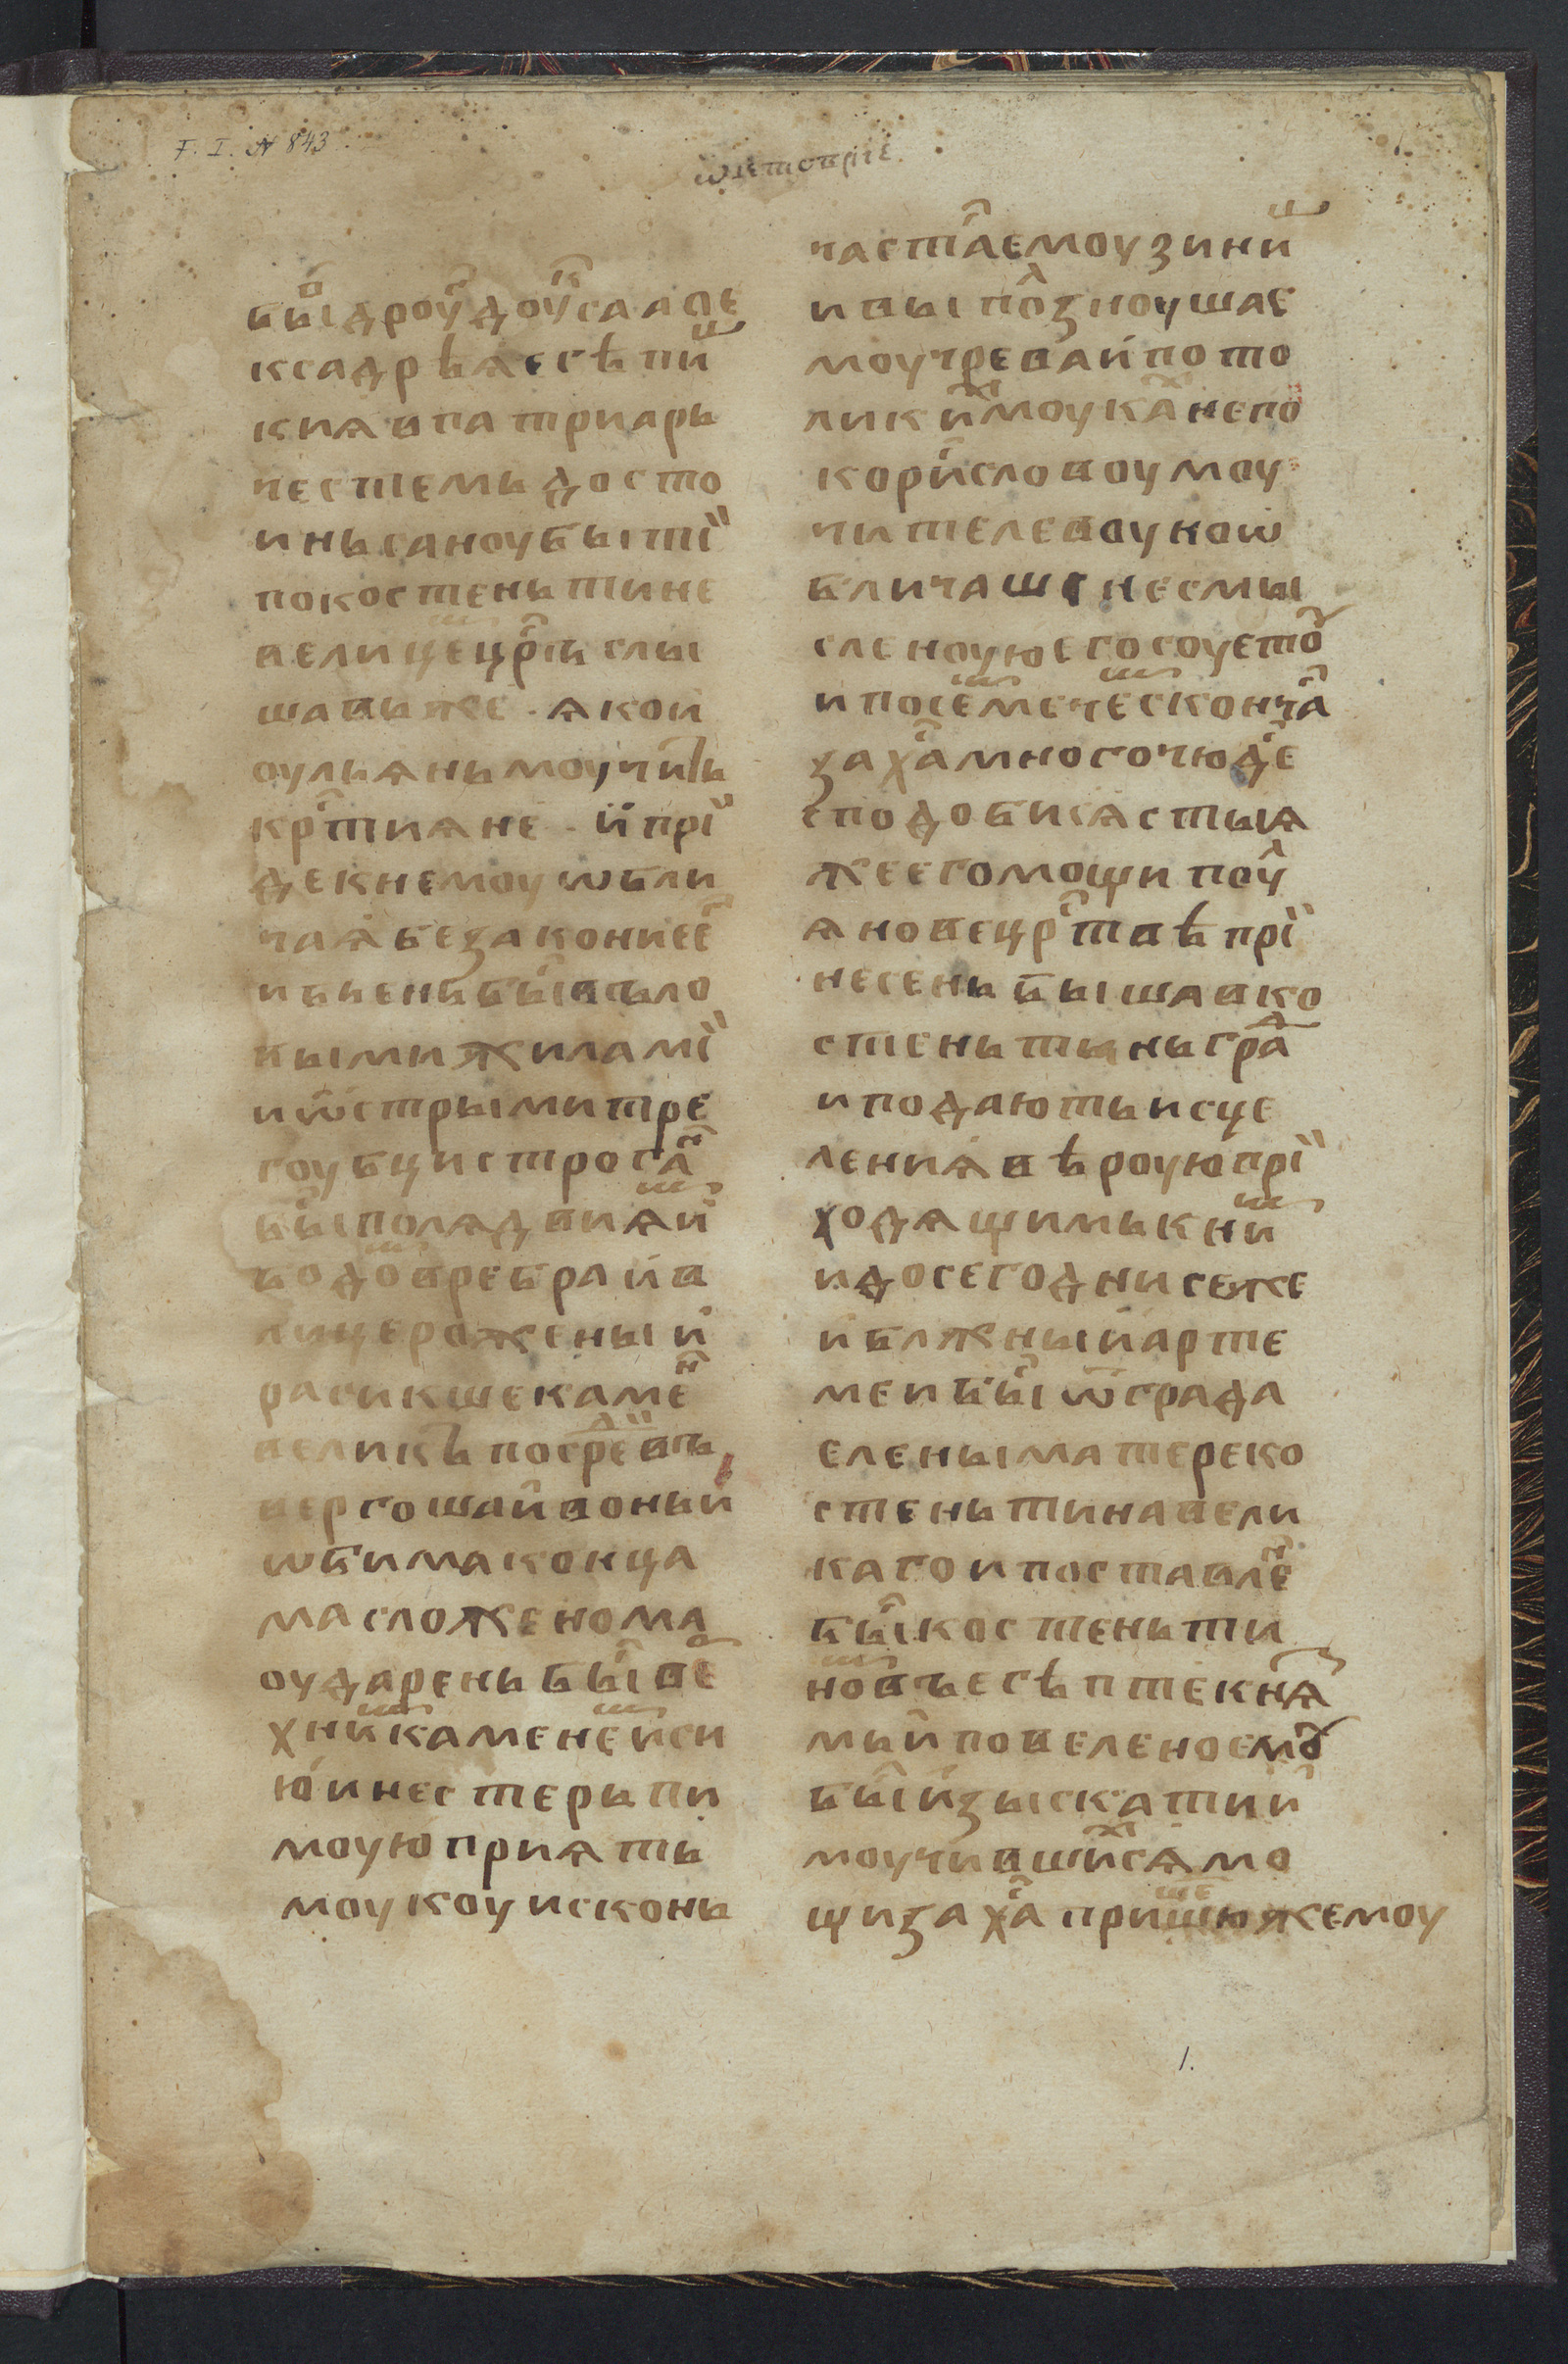 F. I. N 843
бы҇ дроу҇ доу҇к саале
ксадрѣꙗ есѣпи҇т
киꙗ в патриарь
честемь досто
инь саноу бытї
по костеньтине
велице цр҇ѣ слы
шавь же · ꙗко и
оульꙗнь моучить
кр҇тиꙗне · и прї
де к немоу ѡбли
чаꙗ безаконие е҇
и бьень бы҇ всъло
выми жилами
и ѡстрыми тре
гоубци строга҇н
бы҇ полꙗдвиꙗ и҇т
бодо҇т в ребра и в
лице рожены и
расикше каме҇н
великъ посре҇д въ
вергоша и во нь и
ѡбима конца
ма сложенома
оударень бы҇ ве҇
хни҇т камене҇т и си
ю и нестерьпи
моую приꙗть
моукоу исконь
ча ста҇ емоу зини҇т
и выпо҇л зноу ша е
моу чрева и по то
лики҇х моука҇х не по
кори҇ словоу моу
чителевоу но ѡ
бличаше несмы
сленоую его соуето҇
и посе҇м мече҇т сконча҇
за ха҇ многочюде҇
сподобисꙗ стыꙗ
же его мощи по оу҇л
ꙗнове цр҇твѣ прї
несень быша в ко
стеньтинь гра҇д
и подають исце
лениꙗ вѣрою прї
ходꙗщимь к ни҇т
и до сего дни се же
и блжный арте
меи бы҇ ѿ града
елены матере ко
стеньтина вели
каго и поставле҇н
бы҇ костеньти
но҇т въ есѣптѣ кнꙗ҇з
мьи повелено емꙋ
бы҇ изыскати и
моучивши҇хсꙗ мо
щи за ха҇ пришѣ҇ю же моу
1.